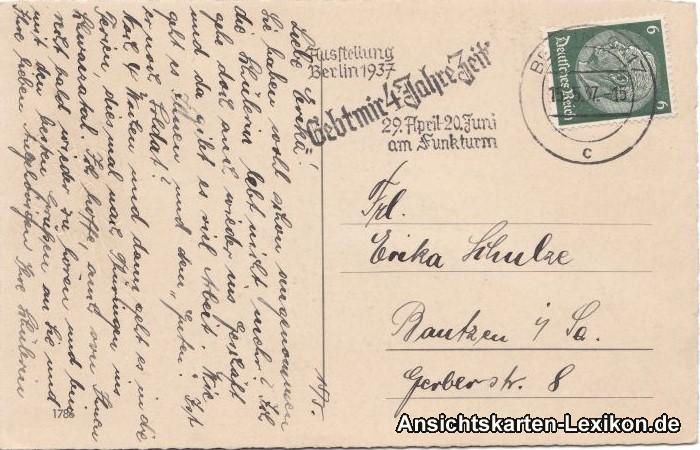 Ausstellung
Berlin 1937
Gebt mir 4 Jahre Zeit
29. April-20. Juni
am Funkturm
BE
c
6
6
Deutsches Reich
Frl.
Erika Schulze
Bautzen i/ Sa.
Gerberstr. 8
Liebe Erika!
Sie haben wohl schon angenommen
die Schülerin lebt nicht mehr? Ich
gehe doch auch wieder ins Geschäft
und da gibt es viel Arbeit. Wie
geht es Ihnen und dem "Guten". Ist
er noch Soldat?
Noch 4 Wochen und dann geht es in die
Ferien, diesmal nach Thüringen ins
Schwarzatal. Ich hoffe, auch von Ihnen
recht bald wieder zu hören und bin
mit den besten Grüßen an Sie und
Ihre lieben Angehörigen Ihre Schülerin
1788
Ansichtskarten-Lexikon.de